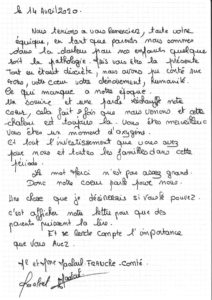 le 14 Avril 2020.
Nous tenions à vous remercier, toute votre
équipe, en tant que parents nous sommes
dans la douleur pour nos enfants quelque
soit la pathologie, mais vous êtes la présente
Tout en étant discrète, mais avons pu compter sur
vous, votre cœur votre dévouement, humanité.
Ce qui manque a notre époque.
Un sourire et une parole réchauffe notre
cœur, cela fait 2 fois que nous venons et cette
chaleur est toujours là. Vous êtes merveilleux
Vous êtes un moment d'oxygène.
Et tout l'investissement que vous avez
pour nous et toutes les familles dans cette
période.
Le mot Merci n'est pas assez grand.
Donc notre cœur parle pour nous.
Une chose que je désirerais si vous le pouvez
c'est afficher notre lettre pour que des
parents puissent la lire.
Et se rende compte l'importance
que vous Avez.
Mr et Mme FRANCHE-COMTÉ.